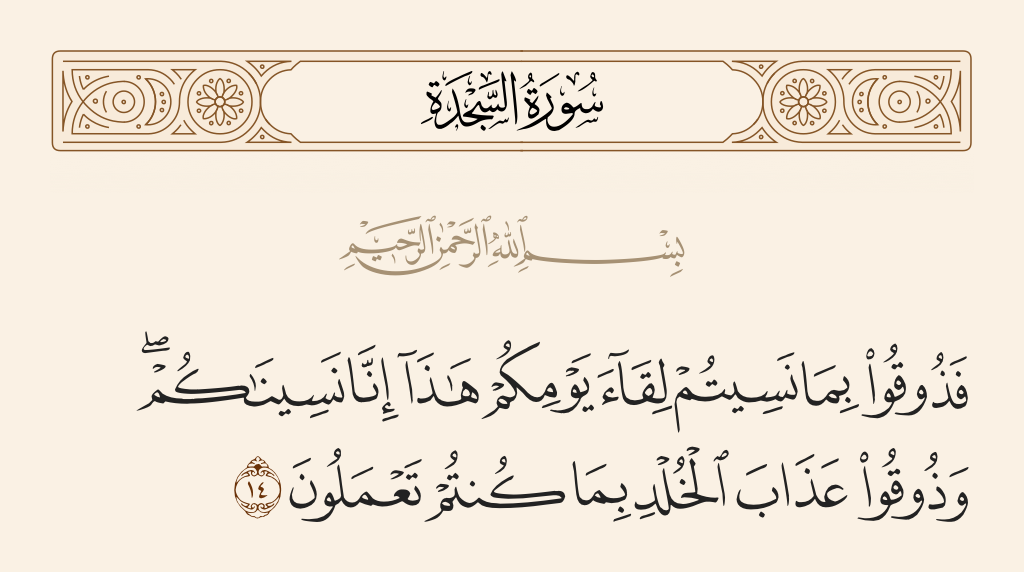 سُورَةُ السَّجْدَةِ
بِسْمِ ٱللَّهِ ٱلرَّحْمَٰنِ ٱلرَّحِيمِ
فَذُوقُوا۟ بِمَا نَسِيتُمْ لِقَآءَ يَوْمِكُمْ هَٰذَآ إِنَّا نَسِينَٰكُمْ ۖ
وَذُوقُوا۟ عَذَابَ ٱلْخُلْدِ بِمَا كُنتُمْ تَعْمَلُونَ ١٤